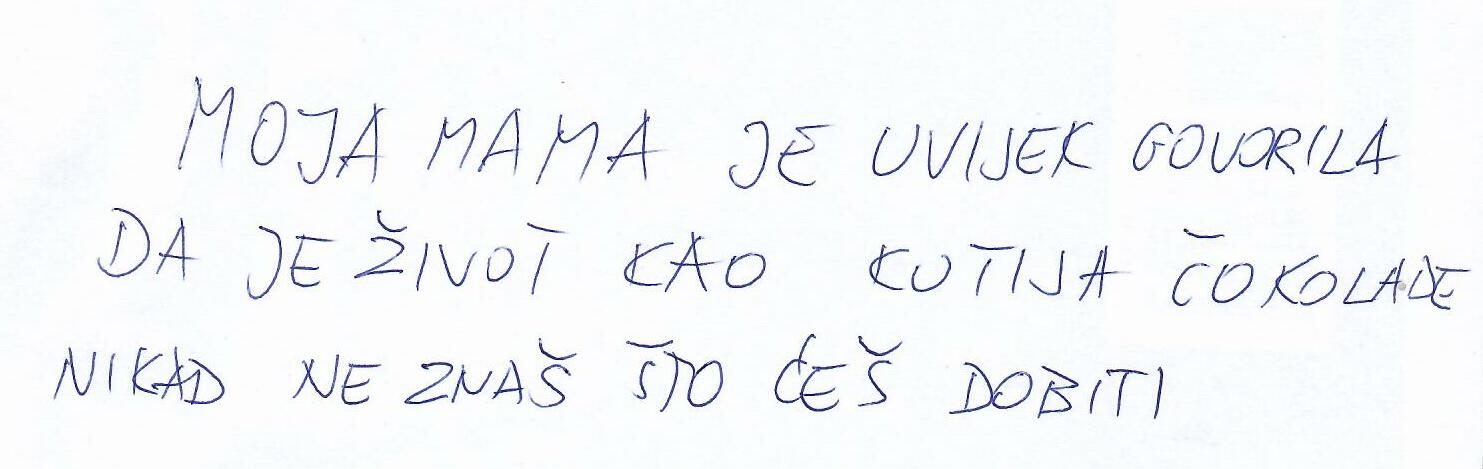 MOJA MAMA JE UVIJEK GOVORILA
DA JE ŽIVOT KAO KUTIJA ČOKOLADE
NIKAD NE ZNAŠ ŠTO ĆEŠ DOBITI